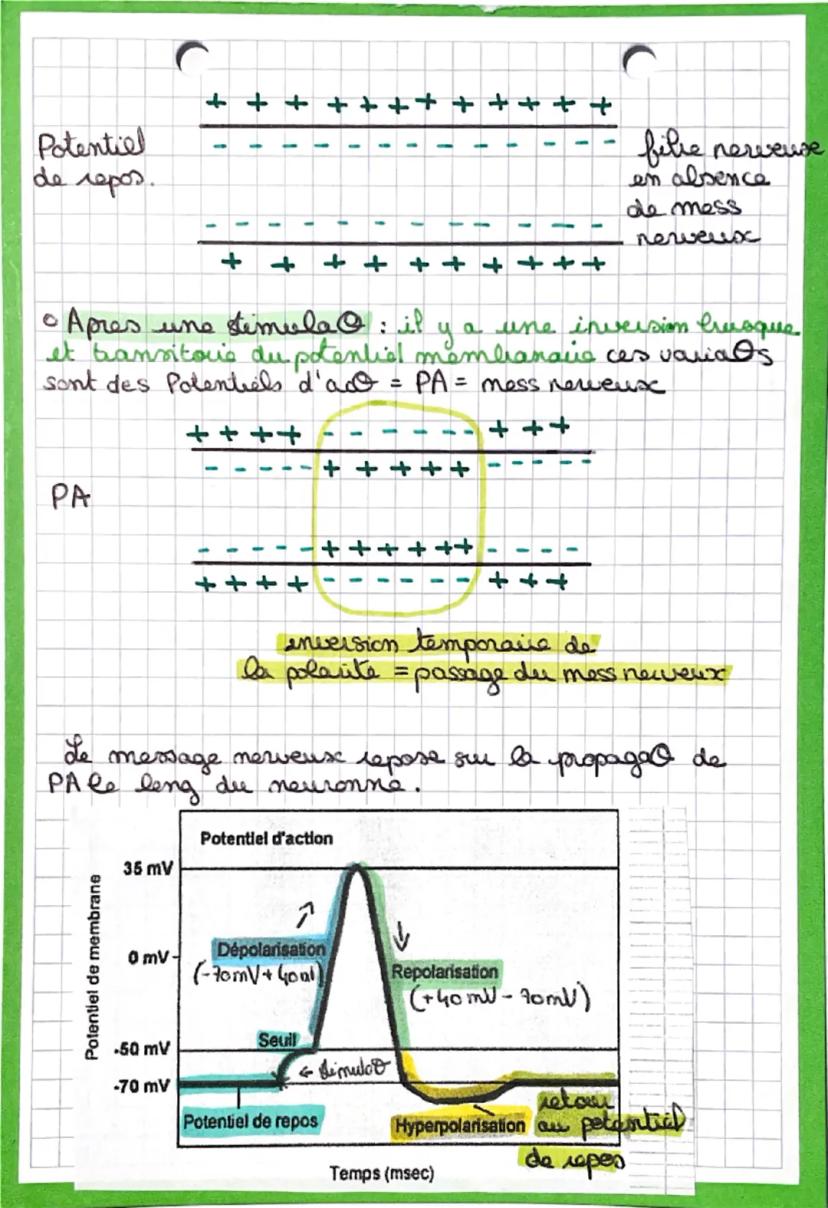 + + + + + + + + + + + +
Potentiel
de repos.
- - - - - - - - - - - -
fibre nerveuse
en absence
de mess
nerveux
- - - - - - - - - - -
+ + + + + + + + + +
° Apres une stimulaΘ : il y a une inversion brusque
et transitoire du potentiel membranaire ces variaΘs
sont des Potentiels d'acΘ = PA = mess nerveux
+ + + + - - - - - - - + + +
- - - - - + + + + + - - - -
PA
- - - - - + + + + + + - - - -
+ + + + - - - - - - + + +
inversion temporaire de
la polarité = passage du mess nerveux
Le message nerveux repose sur la propagaΘ de
PA le long du neuronne.
Potentiel d'action
Potentiel de membrane
35 mV
0 mV
-50 mV
-70 mV
Dépolarisation
Repolarisation
(+40 mV - 70mV)
Seuil
← stimulaΘ
Potentiel de repos
Hyperpolarisation
retour
au potentiel
de repos
Temps (msec)